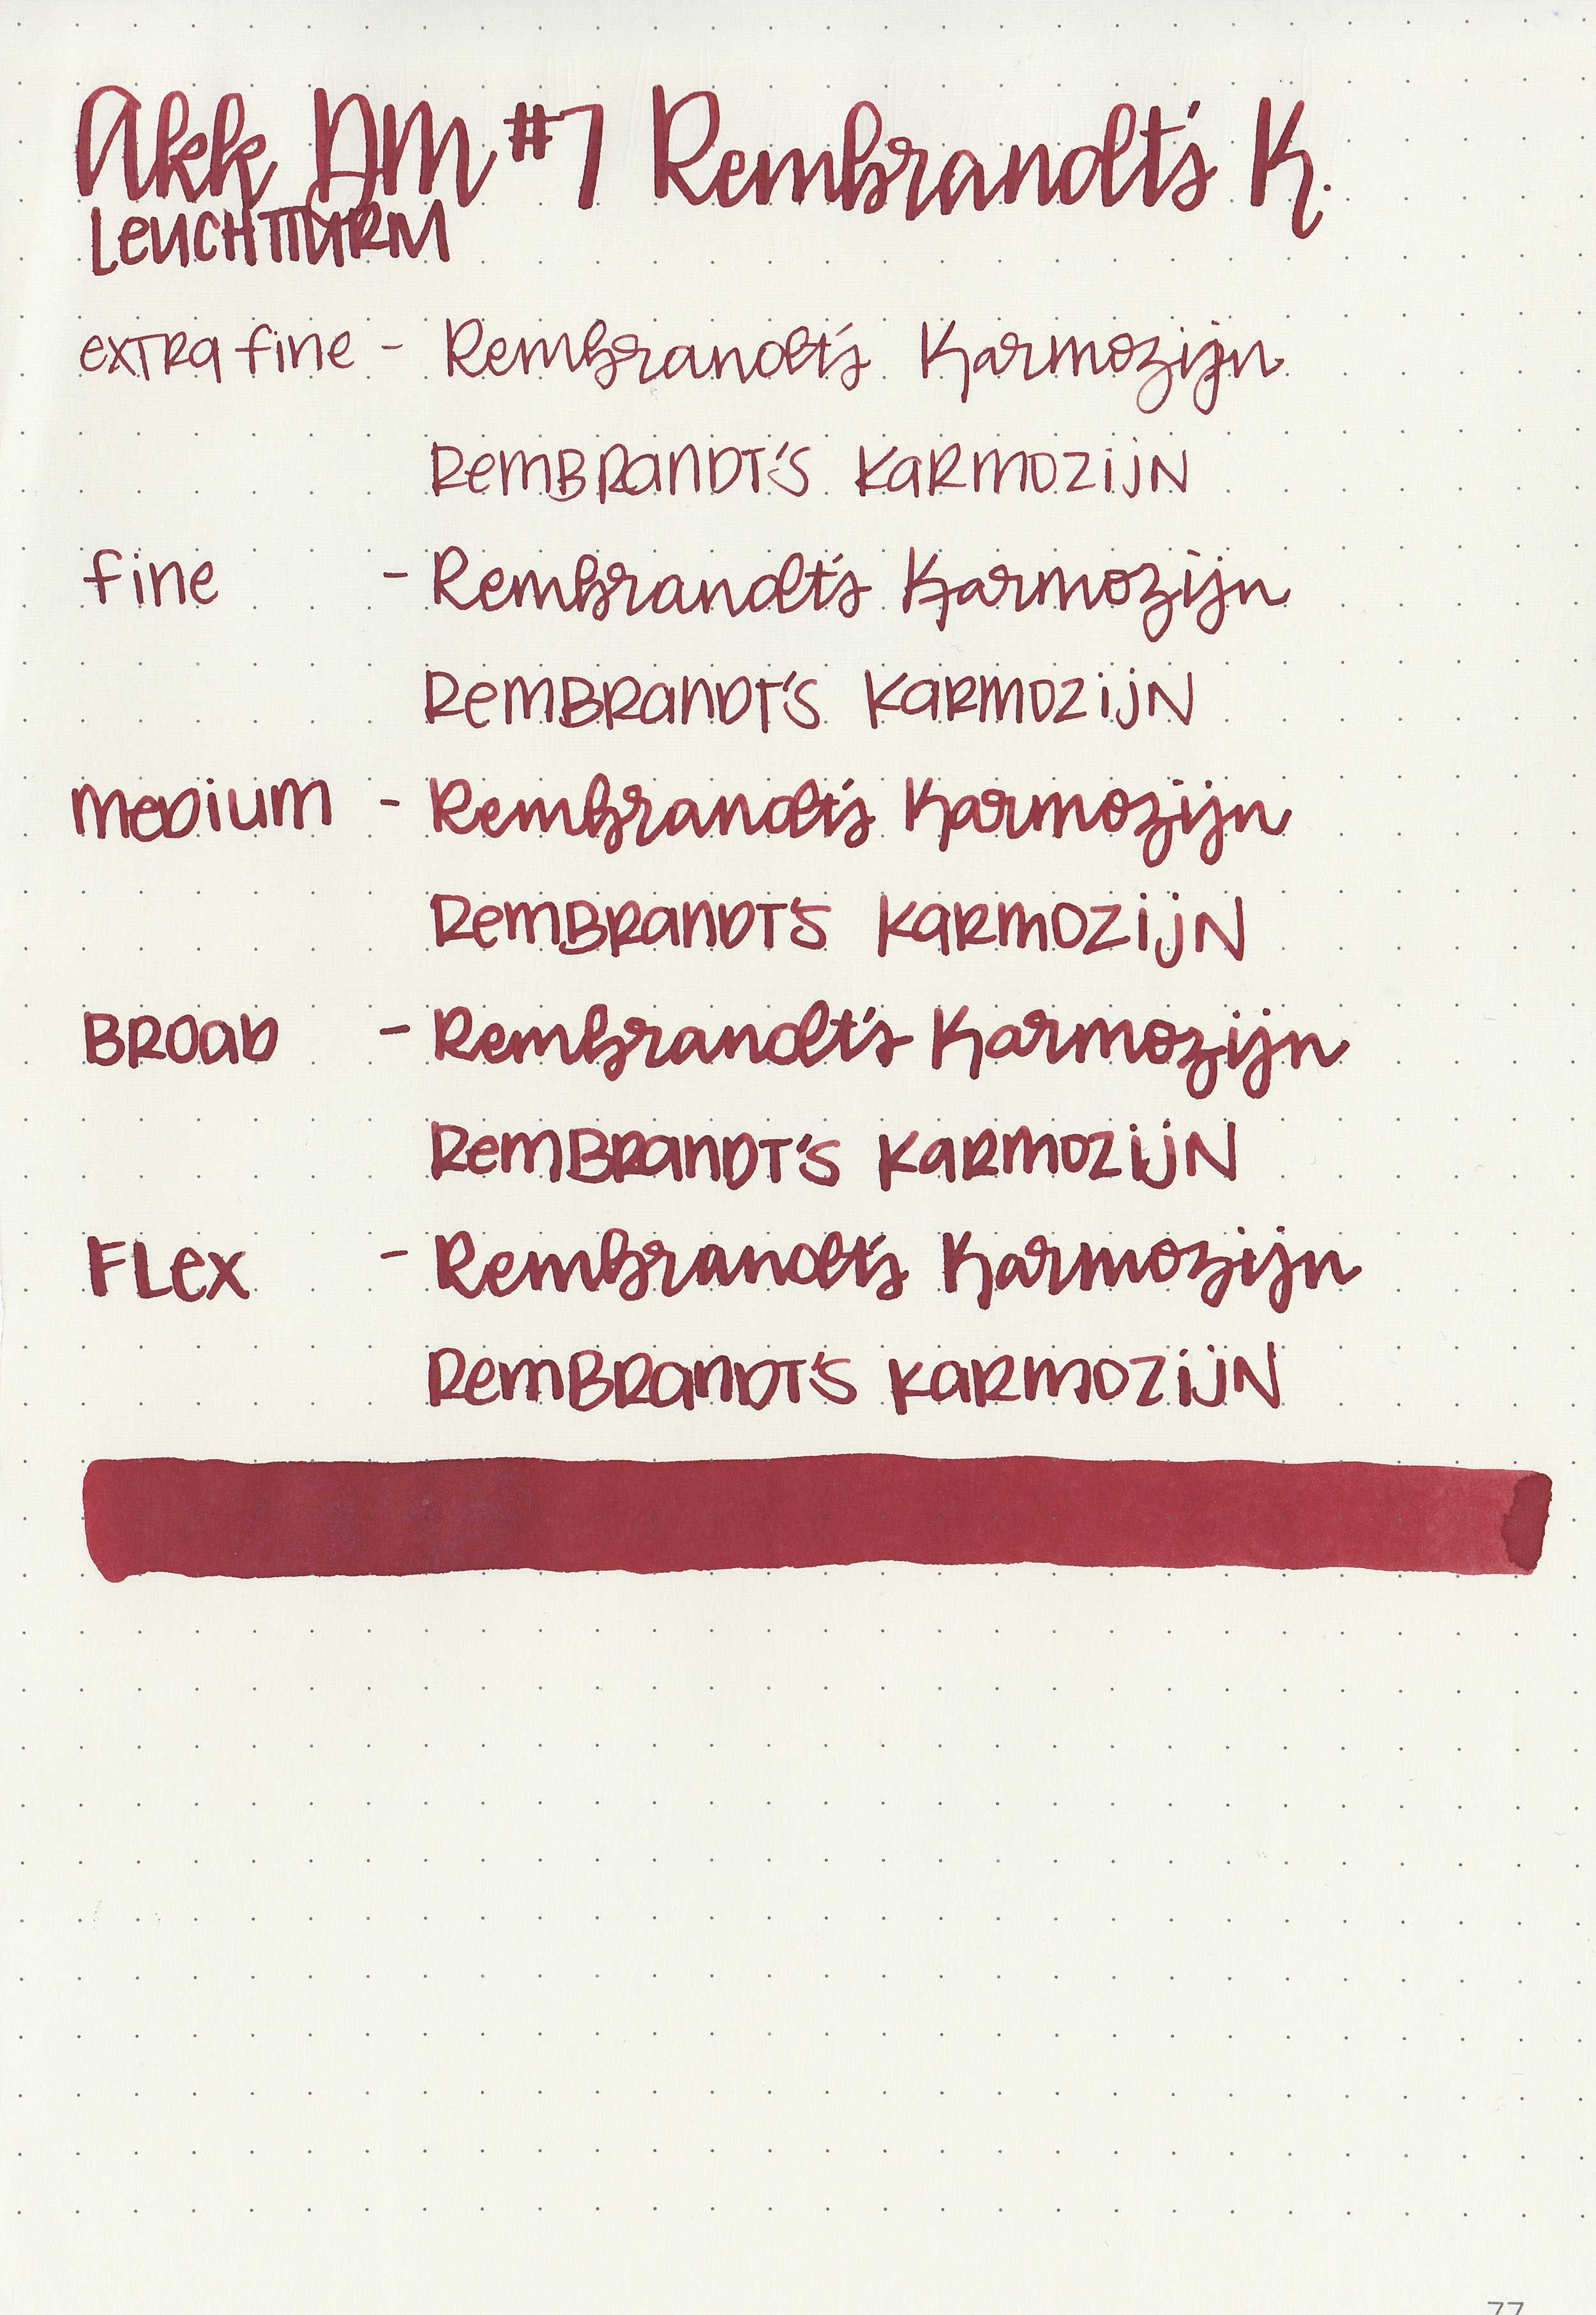 Akk DM #7 Rembrandt's K.
LEUCHTTURM
exTRa fine - Rembrandt's Karmozijn
RemBRanDT'S KaRmOZijN
fine - Rembrandt's Karmozijn
RemBRanDT'S KaRmOZijN
meDium - Rembrandt's Karmozijn
RemBRanDT'S KaRmOZijN
BROaD - Rembrandt's Karmozijn
RemBRanDT'S KaRmOZijN
FLex - Rembrandt's Karmozijn
RemBRanDT'S KaRmOZijN
77